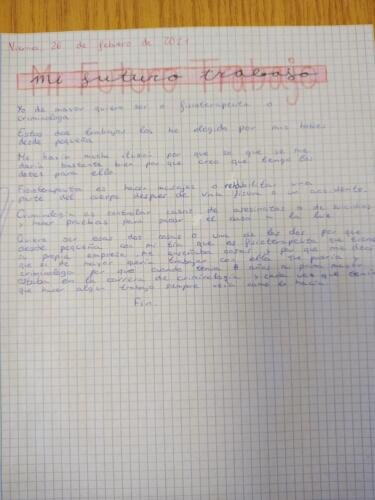 Viernes, 26 de febrero de 2021
Mi Futuro Trabajo
mi futuro trabajo
Yo de mayor quiero ser o fisioterapeuta o
criminologa.
Estos dos trabajos los he elegido por mis
desde pequeña
Me haría mucha ilusión por que se que se me
daría bastante bien por que creo que tengo los
dotes para ello.
Fisioterapeuta es hacer masajes o rehabilitar una
parte del cuerpo despues de una fisura o un accidente.
Criminologia es controlar casos de asesinatos o de suicidios
y hacer pruebas para sacar el caso a la luz.
Quiero ser esas dos cosas o una de las dos por que
desde pequeña con mi tia que es fisioterapeuta que tiene
su propia empresa me enseñaba cosas y por que me decia
que si de mayor queria trabajar con ella me queria y
criminologa por que cuando tenia 8 años mi prima mayor
estaba en la carrera de criminologia y cada vez que tenia
que hacer algun trabajo siempre veia como lo hacia.
Fin.